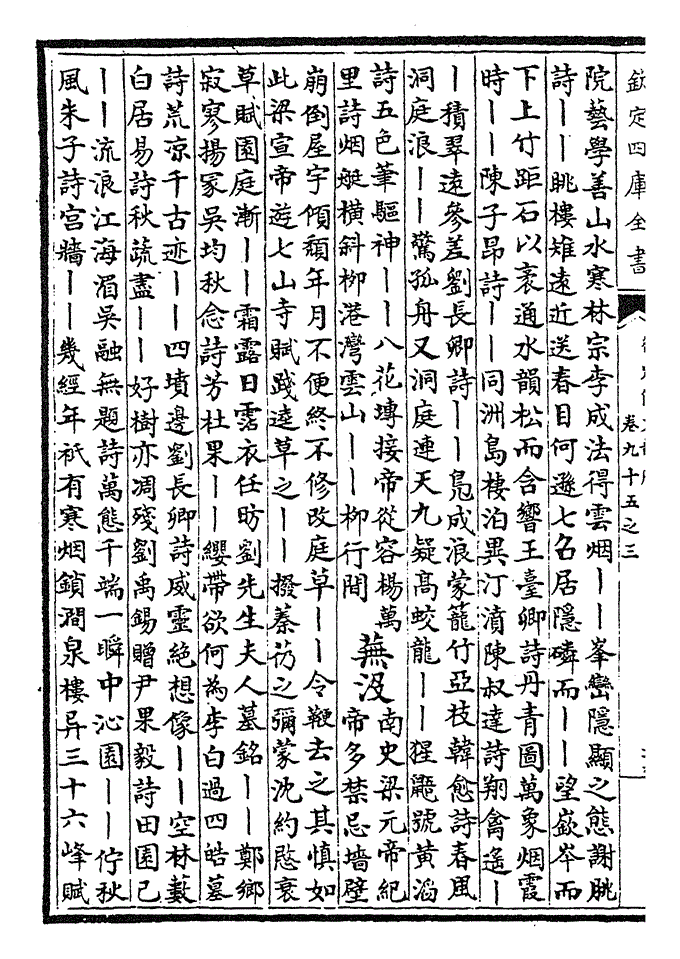 欽定四庫全書
卷九十五之三
院藝學善山水寒林宗李成法得雲烟——峯巒隱顯之態謝朓
詩——眺樓雉遠近送春目何遜七召居隱磷而——望嶔岑而
下上竹距石以袤通水韻松而含響王臺卿詩丹青圖萬象烟霞
時——陳子昂詩——同洲島棲泊異汀濆陳叔達詩翔禽遙—
—積翠遠參差劉長卿詩——鳧成浪蒙籠竹亞枝韓愈詩春風
洞庭浪——驚孤舟又洞庭連天九疑高蛟龍——猩鼯號黃滔
詩五色筆驅神——八花塼接帝從容楊萬
里詩烟艇橫斜栁港灣雲山——栁行間
蕪没
南史梁元帝紀
帝多禁忌墻壁
崩倒屋宇傾頹年月不便終不修改庭草——令鞭去之其慎如
此梁宣帝遊七山寺賦踐逵草之——撥蓁礽之彌蒙沈約愍衰
草賦園庭漸——霜露日霑衣任昉劉先生夫人墓銘——鄭鄉
寂寥揚冢吳均秋念詩芳杜果——纓帶欲何為李白過四皓墓
詩荒凉千古迹——四墳邊劉長卿詩威靈絶想像——空林藪
白居易詩秋蔬盡——好樹亦凋殘劉禹錫贈尹果毅詩田園已
——流浪江海湄吳融無題詩萬態千端一瞬中沁園——佇秋
風朱子詩宮牆——幾經年祇有寒烟鎖澗泉樓异三十六峰賦